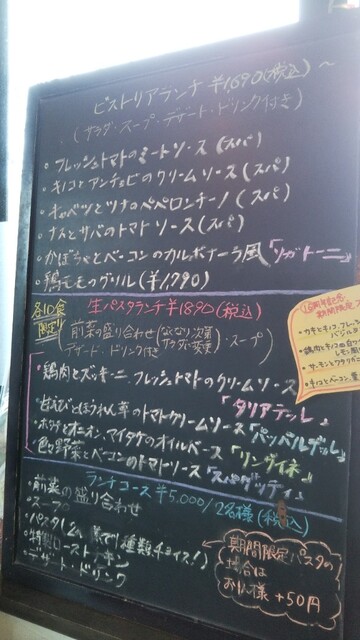 ピストリアランチ ¥1,690(税込)～
(サラダ・スープ・デザート・ドリンク付き)
・フレッシュトマトのミートソース(スパ)
・キノコとアンチョビのクリームソース(スパ)
・キャベツとツナのペペロンチーノ(スパ)
・ナスとサバのトマトソース(スパ)
・かぼちゃとベーコンのカルボナーラ風「リガトーニ」
・鶏モモのグリル(¥1,790)
各10食限定!!
生パスタランチ ¥1890(税込)
前菜の盛り合わせ(なくなり次第サラダに変更)・スープ
デザート・ドリンク付き
・鶏肉とズッキーニ、フレッシュトマトのクリームソース
「タリアテッレ」
・甘えびとほうれん草のトマトクリームソース「パッパルデッレ」
・ホタテとオニオン、マイタケのオイルベース「リングイネ」
・色々野菜とベーコンのトマトソース「スパゲッティ」
ランチコース ¥5,000/2名様(税込)
・前菜の盛り合わせ
・スープ
・パスタ(上の 種類チョイス!)
・特製ローストチキン
・デザート・ドリンク
期間限定パスタの
場合は
お1人様 +50円
期間限定